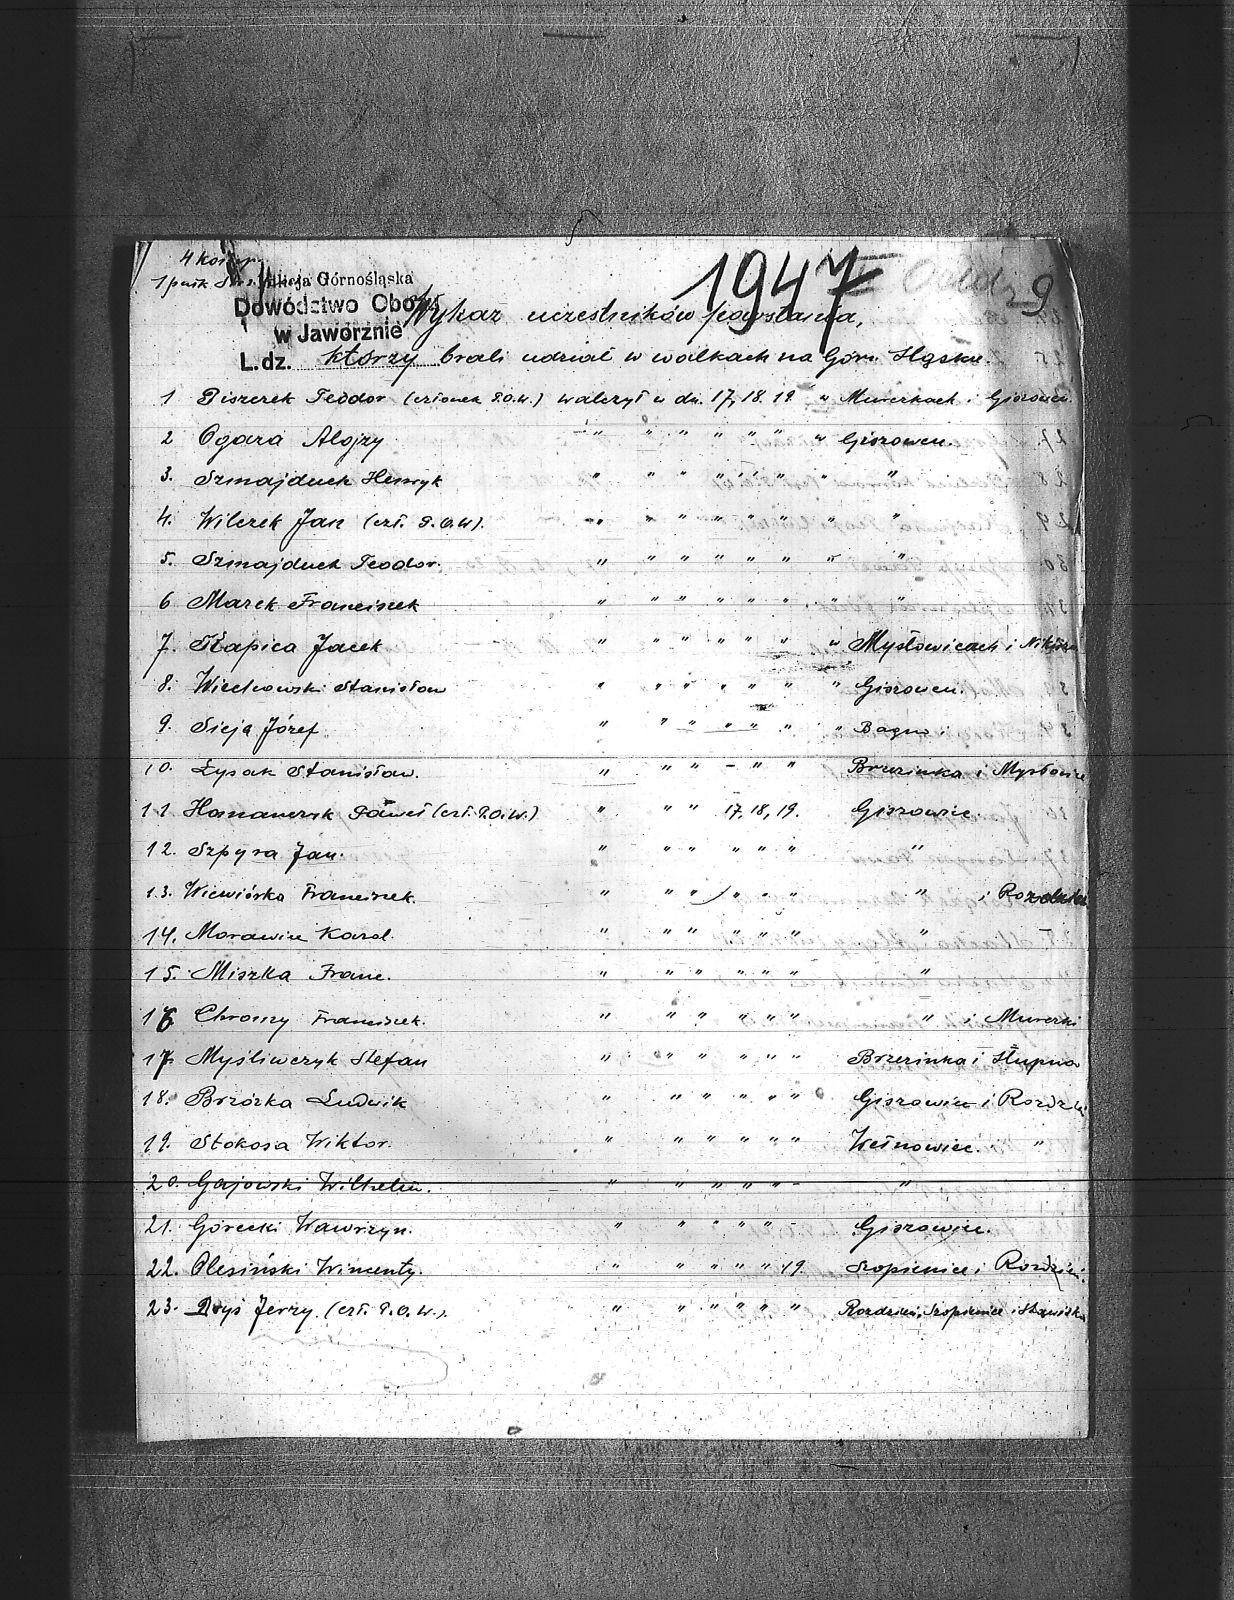 4 komp.
1 pułk Strz. 1947 Oddz 9
Misja Górnośląska
Dowództwo Obozu
w Jaworznie
L.dz.
Wykaz uczestników powstania,
którzy brali udział w walkach na Górn. Śląsku.
1 Piszczek Teodor (członek P.O.W.) walczył w dn. 17, 18. 19. w Murckach i Giszowcu.
2 Ogara Alojzy " " " " " " " Giszowcu.
3. Szmajduch Henryk " " " " " " " "
4. Wilczek Jan (czł. P.O.W). " " " " " " " "
5. Szmajduch Teodor. " " " " " " " "
6 Marek Franciszek " " " " " " " "
7. Kapica Jacek " " " " " " " Mysłowicach i
8. Wiechowski Stanisław " " " " " " " Giszowcu.
9. Sieja Józef " " " " " " " Bagno
10. Łysak Stanisław. " " " – " " Brzezinka i Mysłowice
11. Hamanczyk Paweł (czł. P.O.W.) " " " 17, 18, 19. Giszowiec.
12. Szpyra Jan. " " " " " " "
13. Wiewiórka Franciszek. " " " " " " " i
14. Morawiec Karol. " " " " " " "
15. Miszka Franc. " " " " " " "
16 Chromy Franciszek. " " " " " " " i Murcki
17. Myśliwczyk Stefan " " " " " " Brzezinka i Słupna
18. Brzózka Ludwik " " " " " " Giszowiec i
19. Stokosa Wiktor. " " " " " " Wełnowiec. "
20. Gajowski Wilhelm. " " " " " - "
21. Górecki Wawrzyn. " " " " " - Giszowiec.
22. Olesiński Wincenty. " " " " " 19. Szopienice i Roździeń.
23. Ryś Jerzy. (czł. P.O.W.). " " " " " " Roździeń, Szopienice i